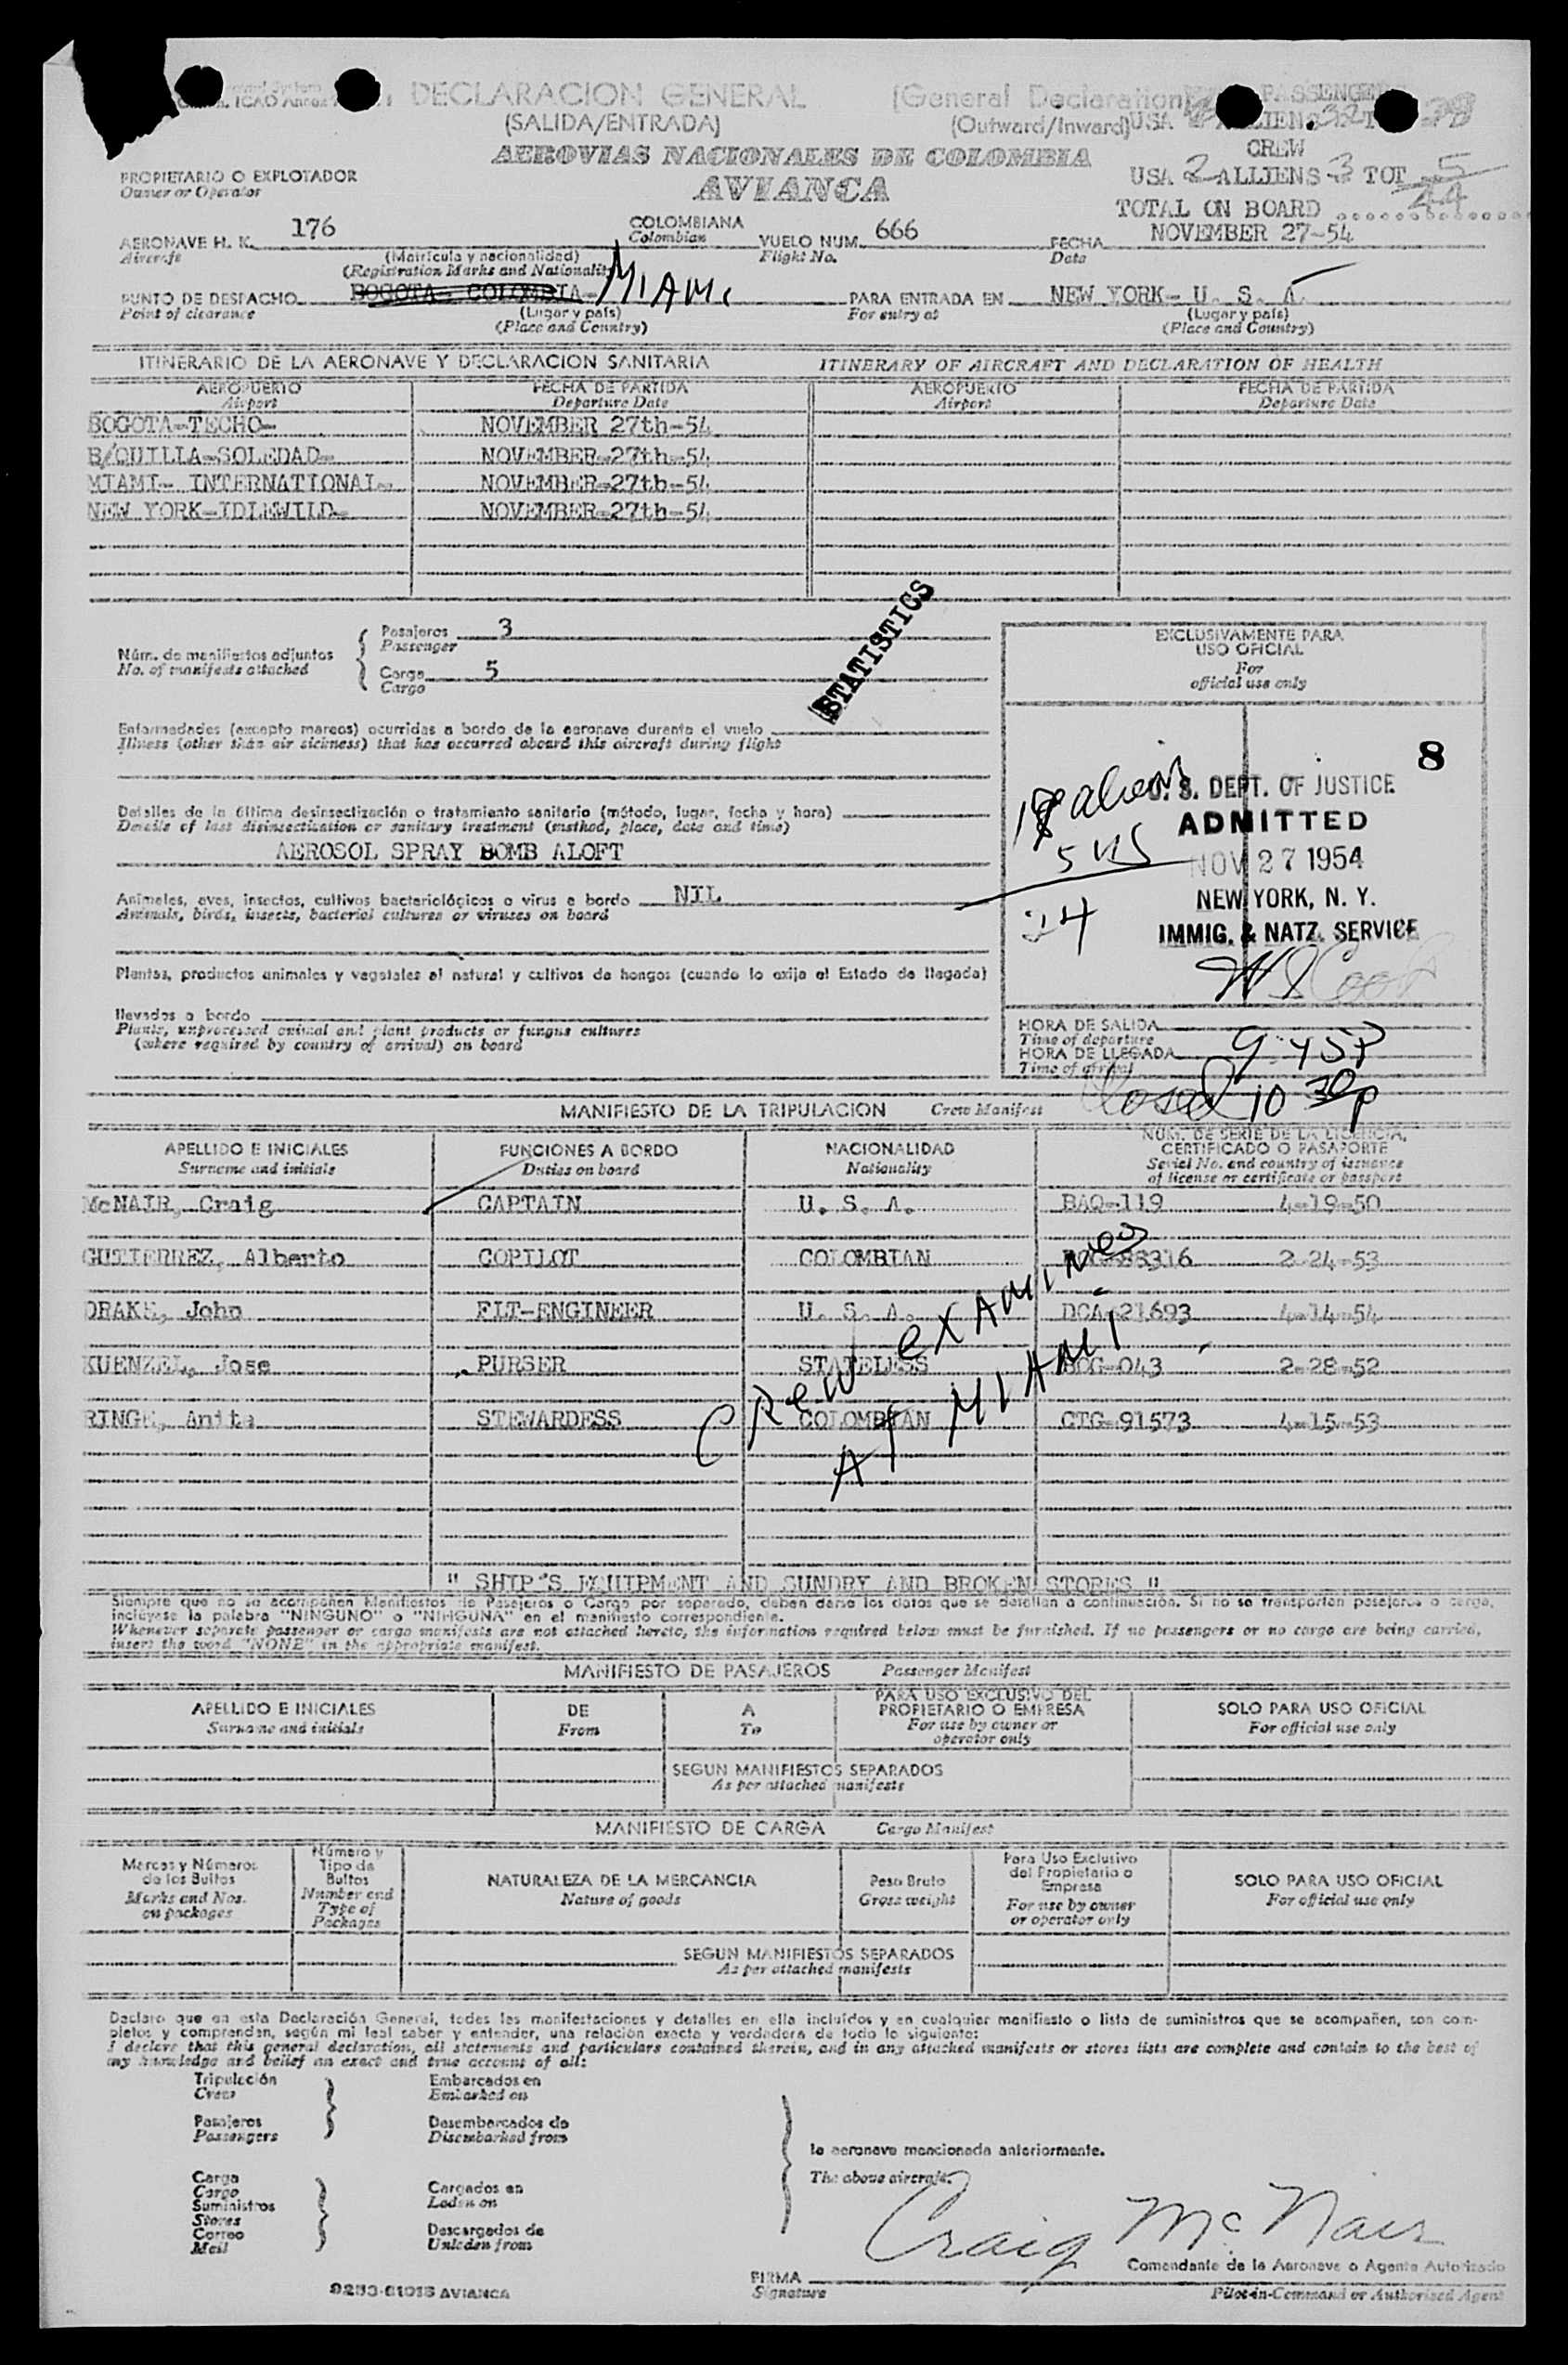 DECLARACION GENERAL (General Declaration) PASSENGER
(SALIDA/ENTRADA) (Outward/Inward) USA
AEROVIAS NACIONALES DE COLOMBIA CREW
PROPIETARIO O EXPLOTADOR AVIANCA USA 2 ALLIENS 3 TOT 5
Owner or Operator TOTAL ON BOARD 44
AERONAVE H. K. 176 COLOMBIANA VUELO NUM. 666 FECHA NOVEMBER 27-54
Aircraft (Matrícula y nacionalidad) Colombian Flight No. Date
(Registration Marks and Nationality)
PUNTO DE DESPACHO BOGOTA- COLOMBIA- MIAMI PARA ENTRADA EN NEW YORK- U. S. A.
Point of clearance (Lugar y país) For entry at (Lugar y país)
(Place and Country) (Place and Country)
ITINERARIO DE LA AERONAVE Y DECLARACION SANITARIA ITINERARY OF AIRCRAFT AND DECLARATION OF HEALTH
AEROPUERTO FECHA DE PARTIDA AEROPUERTO FECHA DE PARTIDA
Airport Departure Date Airport Departure Date
BOGOTA-TECHO- NOVEMBER 27th-54
B/QUILLA-SOLEDAD- NOVEMBER-27th-54
MIAMI- INTERNATIONAL- NOVEMBER-27th-54
NEW YORK-IDLEWILD- NOVEMBER-27th-54
STATISTICS
Núm. de manifiestos adjuntos Pasajeros 3
No. of manifests attached Passenger
Carga 5
Cargo
EXCLUSIVAMENTE PARA
USO OFICIAL
For
official use only
Enfermedades (excepto mareos) ocurridas a bordo de la aeronave durante el vuelo
Illness (other than air sickness) that has occurred aboard this aircraft during flight
8
Detalles de la última desinsectización o tratamiento sanitario (método, lugar, fecha y hora)
Details of last disinsectization or sanitary treatment (method, place, date and time)
AEROSOL SPRAY BOMB ALOFT
Animales, aves, insectos, cultivos bacteriológicos o virus a bordo NIL
Animals, birds, insects, bacterial cultures or viruses on board
U. S. DEPT. OF JUSTICE
ADMITTED
NOV 27 1954
NEW YORK, N. Y.
IMMIG. & NATZ. SERVICE
5 US
24
Plantas, productos animales y vegetales al natural y cultivos de hongos (cuando lo exija el Estado de llegada)
llevados a bordo
Plants, unprocessed animal and plant products or fungus cultures
(where required by country of arrival) on board
HORA DE SALIDA
Time of departure
HORA DE LLEGADA 9:45P
Time of arrival
Closed 10 30p
MANIFIESTO DE LA TRIPULACION Crew Manifest
APELLIDO E INICIALES FUNCIONES A BORDO NACIONALIDAD NUM. DE SERIE DE LA LICENCIA,
CERTIFICADO O PASAPORTE
Surname and initials Duties on board Nationality Serial No. and country of issuance
of license or certificate or passport
McNAIR, Craig CAPTAIN U. S. A. BAQ-119 4-19-50
GUTIERREZ, Alberto COPILOT COLOMBIAN 2-24-53
DRAKE, John FLT-ENGINEER U. S. A. DCA-21693 4-14-54
KUENZEL, Jose PURSER STATELESS BOG-043 2-28-52
RINGE, Anita STEWARDESS COLOMBIAN CTG-91573 4-15-53
CREW EXAMINED
AT MIAMI
" SHIP'S EQUIPMENT AND SUNDRY AND BROKEN STORES "
Siempre que no se acompañen Manifiestos de Pasajeros o Carga por separado, deben darse los datos que se detallan a continuación. Si no se transportan pasajeros o carga,
inclúyese la palabra "NINGUNO" o "NINGUNA" en el manifiesto correspondiente.
Whenever separate passenger or cargo manifests are not attached hereto, the information required below must be furnished. If no passengers or no cargo are being carried,
insert the word "NONE" in the appropriate manifest.
MANIFIESTO DE PASAJEROS Passenger Manifest
APELLIDO E INICIALES DE A PARA USO EXCLUSIVO DEL
PROPIETARIO O EMPRESA SOLO PARA USO OFICIAL
Surname and initials From To For use by owner or
operator only For official use only
SEGUN MANIFIESTOS SEPARADOS
As per attached manifests
MANIFIESTO DE CARGA Cargo Manifest
Marcas y Números
de los Bultos
Marks and Nos.
on packages
Número y
Tipo de
Bultos
Number and
Type of
Packages
NATURALEZA DE LA MERCANCIA
Nature of goods
Peso Bruto
Gross weight
Para Uso Exclusivo
del Propietario o
Empresa
For use by owner
or operator only
SOLO PARA USO OFICIAL
For official use only
SEGUN MANIFIESTOS SEPARADOS
As per attached manifests
Declaro que en esta Declaración General, todas las manifestaciones y detalles en ella incluídos y en cualquier manifiesto o lista de suministros que se acompañen, son com-
pletos y comprenden, según mi leal saber y entender, una relación exacta y verdadera de todo lo siguiente:
I declare that this general declaration, all statements and particulars contained therein, and in any attached manifests or stores lists are complete and contain to the best of
my knowledge and belief an exact and true account of all:
Tripulación Embarcados en
Crew Embarked on
Pasajeros Desembarcados de
Passengers Disembarked from
la aeronave mencionada anteriormente.
The above aircraft.
Carga Cargados en
Cargo Laden on
Suministros
Stores
Correo Descargados de
Mail Unladen from
Craig McNair
Comandante de la Aeronave o Agente Autorizado
FIRMA
Signature Pilot-in-Command or Authorized Agent
AVIANCA